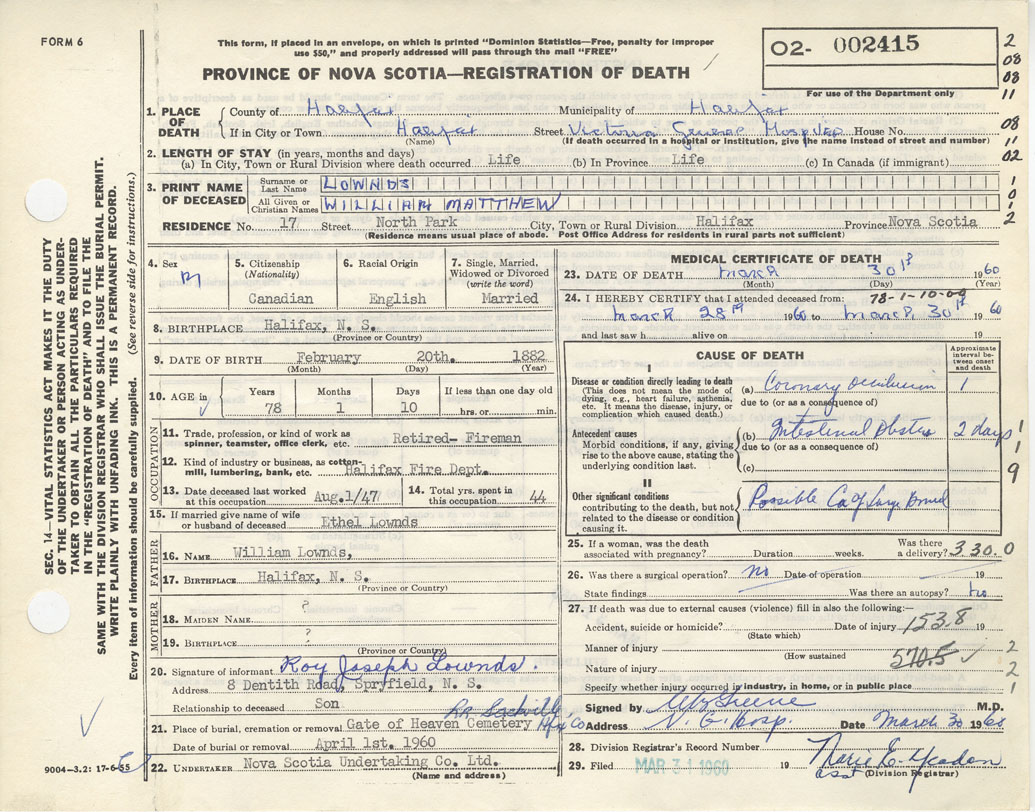 FORM 6
This form, if placed in an envelope, on which is printed "Dominion Statistics—Free, penalty for improper
use $50," and properly addressed will pass through the mail "FREE"
PROVINCE OF NOVA SCOTIA—REGISTRATION OF DEATH
02- 002415
For use of the Department only
2
08
08
11
08
11
02
1
0
1
2
SEC. 14—VITAL STATISTICS ACT MAKES IT THE DUTY
OF THE UNDERTAKER OR PERSON ACTING AS UNDER-
TAKER TO OBTAIN ALL THE PARTICULARS REQUIRED
IN THE "REGISTRATION OF DEATH" AND TO FILE THE
SAME WITH THE DIVISION REGISTRAR WHO SHALL ISSUE THE BURIAL PERMIT.
WRITE PLAINLY WITH UNFADING INK. THIS IS A PERMANENT RECORD.
Every item of information should be carefully supplied. (See reverse side for instructions.)
1. PLACE OF DEATH
County of Halifax Municipality of Halifax
If in City or Town Halifax Street Victoria General Hospital House No.
(Name) (If death occurred in a hospital or Institution, give the name instead of street and number)
2. LENGTH OF STAY (in years, months and days)
(a) In City, Town or Rural Division where death occurred Life (b) In Province Life (c) In Canada (if immigrant)
3. PRINT NAME OF DECEASED
Surname or Last Name LOWNDS
All Given or Christian Names WILLIAM MATTHEW
RESIDENCE No. 17 Street North Park City, Town or Rural Division Halifax Province Nova Scotia
(Residence means usual place of abode. Post Office Address for residents in rural parts not sufficient)
4. Sex M
5. Citizenship (Nationality) Canadian
6. Racial Origin English
7. Single, Married, Widowed or Divorced (write the word) Married
8. BIRTHPLACE Halifax, N. S.
(Province or Country)
9. DATE OF BIRTH February 20th. 1882
(Month) (Day) (Year)
10. AGE in Years 78 Months 1 Days 10 If less than one day old hrs. or min.
OCCUPATION
11. Trade, profession, or kind of work as spinner, teamster, office clerk, etc. Retired- Fireman
12. Kind of industry or business, as cotton-mill, lumbering, bank, etc. Halifax Fire Dept.
13. Date deceased last worked at this occupation Aug.1/47
14. Total yrs. spent in this occupation 44
15. If married give name of wife or husband of deceased Ethel Lownds
FATHER
16. NAME William Lownds,
17. BIRTHPLACE Halifax, N. S.
(Province or Country)
MOTHER
18. MAIDEN NAME ?
19. BIRTHPLACE ?
(Province or Country)
20. Signature of informant Roy Joseph Lownds.
Address 8 Dentith Road, Spryfield, N. S.
Relationship to deceased Son
RR Sackville
21. Place of burial, cremation or removal Gate of Heaven Cemetery Hfx Co
Date of burial or removal April 1st. 1960
22. UNDERTAKER Nova Scotia Undertaking Co. Ltd.
(Name and address)
9004—3.2: 17-6-55
MEDICAL CERTIFICATE OF DEATH
23. DATE OF DEATH March 30th 1960
(Month) (Day) (Year)
24. I HEREBY CERTIFY that I attended deceased from: 78-1-10-09
March 28th 1960 to March 30th 1960
and last saw h alive on 19
CAUSE OF DEATH
Approximate interval between onset and death
I
Disease or condition directly leading to death
(This does not mean the mode of dying, e.g., heart failure, asthenia, etc. It means the disease, injury, or complication which caused death.)
(a) Coronary Occlusion 1
due to (or as a consequence of)
Antecedent causes
Morbid conditions, if any, giving rise to the above cause, stating the underlying condition last.
(b) Intestinal Obstr 2 days
due to (or as a consequence of)
(c)
1
1
9
II
Other significant conditions contributing to the death, but not related to the disease or condition causing it.
Possible Ca of Large Bowel
25. If a woman, was the death associated with pregnancy? Duration weeks. Was there a delivery? 330.0
26. Was there a surgical operation? no Date of operation 19
State findings Was there an autopsy? no
27. If death was due to external causes (violence) fill in also the following:—
Accident, suicide or homicide? Date of injury 153.8 19
(State which)
Manner of injury 2
(How sustained) 570.5
Nature of injury 2
Specify whether injury occurred in industry, in home, or in public place 1
Signed by M.D.
Address V. G. Hosp. Date March 30 1960
28. Division Registrar's Record Number
29. Filed MAR 31 1960 19
asst (Division Registrar)